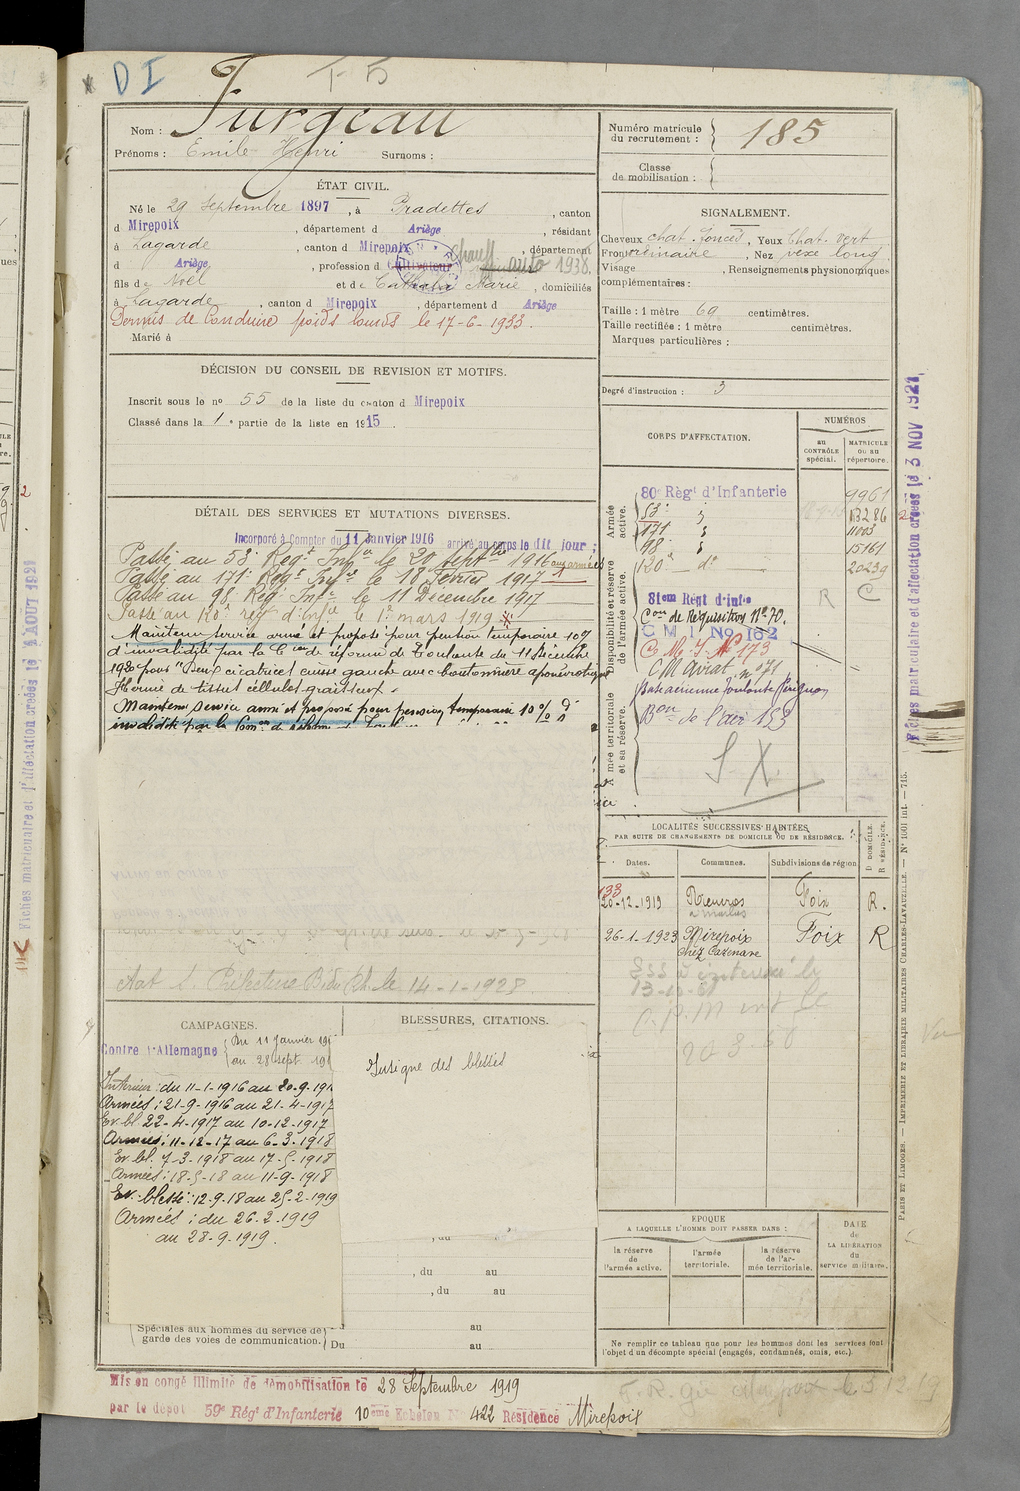 DI
T 5
Nom : Jurgeau
Prénoms : Emile Henri Surnoms :
Numéro matricule du recrutement : 185
Classe de mobilisation :
ÉTAT CIVIL.
Né le 29 Septembre 1897, à Pradettes, canton
d Mirepoix, département d Ariège, résidant
à Lagarde, canton d Mirepoix, département
d Ariège, profession d Cultivateur Chauff. auto 1938
fils de Noël et de Marie, domiciliés
à Lagarde, canton d Mirepoix, département d Ariège
Permis de Conduire poids lourds le 17-6-1933.
Marié à
SIGNALEMENT.
Cheveux chat. foncés, Yeux Chat. vert
Front, Nez vexe long
Visage, Renseignements physionomiques
complémentaires :
Taille : 1 mètre 69 centimètres.
Taille rectifiée : 1 mètre centimètres.
Marques particulières :
Degré d'instruction : 3
DÉCISION DU CONSEIL DE REVISION ET MOTIFS.
Inscrit sous le n° 55 de la liste du canton d Mirepoix
Classé dans la 1e partie de la liste en 1915.
DÉTAIL DES SERVICES ET MUTATIONS DIVERSES.
Incorporé à Compter du 11 Janvier 1916 arrivé au corps le dit jour ;
Passé au 53e Regt Infie le 20 septbre 1916 aux armées
Passé au 171e Regt Infie le 18 Février 1917
Passé au 98 Reg Infie le 11 Décembre 1917
Passé au 120e reg d'Infie le 1er mars 1919
Maintenu service armé et proposé pour pension temporaire 10%
d'invalidité par la Cion de réforme de Toulouse du 11 Décembre
1920 pour "Deux cicatrices cuisse gauche avec boutonnière aponévrotique
Hernie de tissus cellulo graisseux.
Maintenu service armé et proposé pour pension temporaire 10% d'
invalidité par la Com
Préfecture le 14-1-1928.
CORPS D'AFFECTATION.
NUMÉROS
au CONTRÔLE spécial.
MATRICULE ou au répertoire.
Armée active.
80e Régt d'Infanterie 9961
53e 13286
171 11003
98 15161
120e do 20239
Disponibilité et réserve de l'armée active.
81em Régt d'infie R C
Con de Réquisition No 70.
C M I No 162
C. M. I. No 173
C M Aviat n° 71
Bat aérienne Toulouse Perignon
Armée territoriale et sa réserve.
Bon de l'air 153
S X.
LOCALITÉS SUCCESSIVES HABITÉES
PAR SUITE DE CHANGEMENTS DE DOMICILE OU DE RÉSIDENCE.
Dates. Communes. Subdivisions de région D DOMICILE. R RÉSIDENCE.
133
20-12-1919 Foix R.
26-1-1923 Mirepoix Foix R
chez Cazenave
CAMPAGNES.
Contre l'Allemagne
Du 11 Janvier 191
au 28 sept. 191
Intérieur : du 11-1-1916 au 20-9-191
Armées : 21-9-1916 au 21-4-1917
Ev. bl. 22-4-1917 au 10-12-1917
Armées : 11-12-17 au 6-3-1918
Ev. bl. 7-3-1918 au 17-5-1918
Armées : 18-5-18 au 11-9-1918
Ev. blessé : 12-9-18 au 25-2-1919
Armées : du 26-2-1919
au 28-9-1919.
BLESSURES, CITATIONS.
Insigne des blessés
, du au
, du au
Spéciales aux hommes du service de garde des voies de communication.
au
Du au
ÉPOQUE
A LAQUELLE L'HOMME DOIT PASSER DANS :
la réserve de l'armée active.
l'armée territoriale.
la réserve de l'armée territoriale.
DATE de LA LIBÉRATION du service militaire.
Ne remplir ce tableau que pour les hommes dont les services font
l'objet d'un décompte spécial (engagés, condamnés, omis, etc.).
Mis en congé illimité de démobilisation le 28 Septembre 1919
par le dépôt 59e Régt d'Infanterie 10eme Echelon No 422 Résidence Mirepoix
Fiches matriculaire et d'affectation créées le 3 NOV 1921
Fiches matriculaire et d'affectation créées le 4 AOUT 1921
PARIS ET LIMOGES. — IMPRIMERIE ET LIBRAIRIE MILITAIRES CHARLES-LAVAUZELLE. — N° 1001 int. — 715.